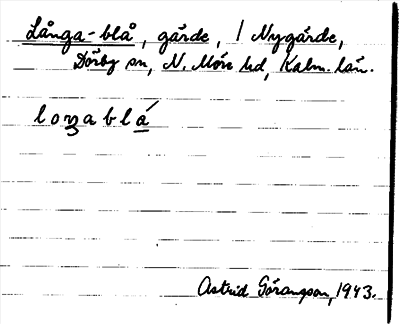 Långa-blå, gärde, / Nygärde,
Dörby sn, N. Möre hd, Kalm. län.
loŋablá
Astrid Göransson, 1943.